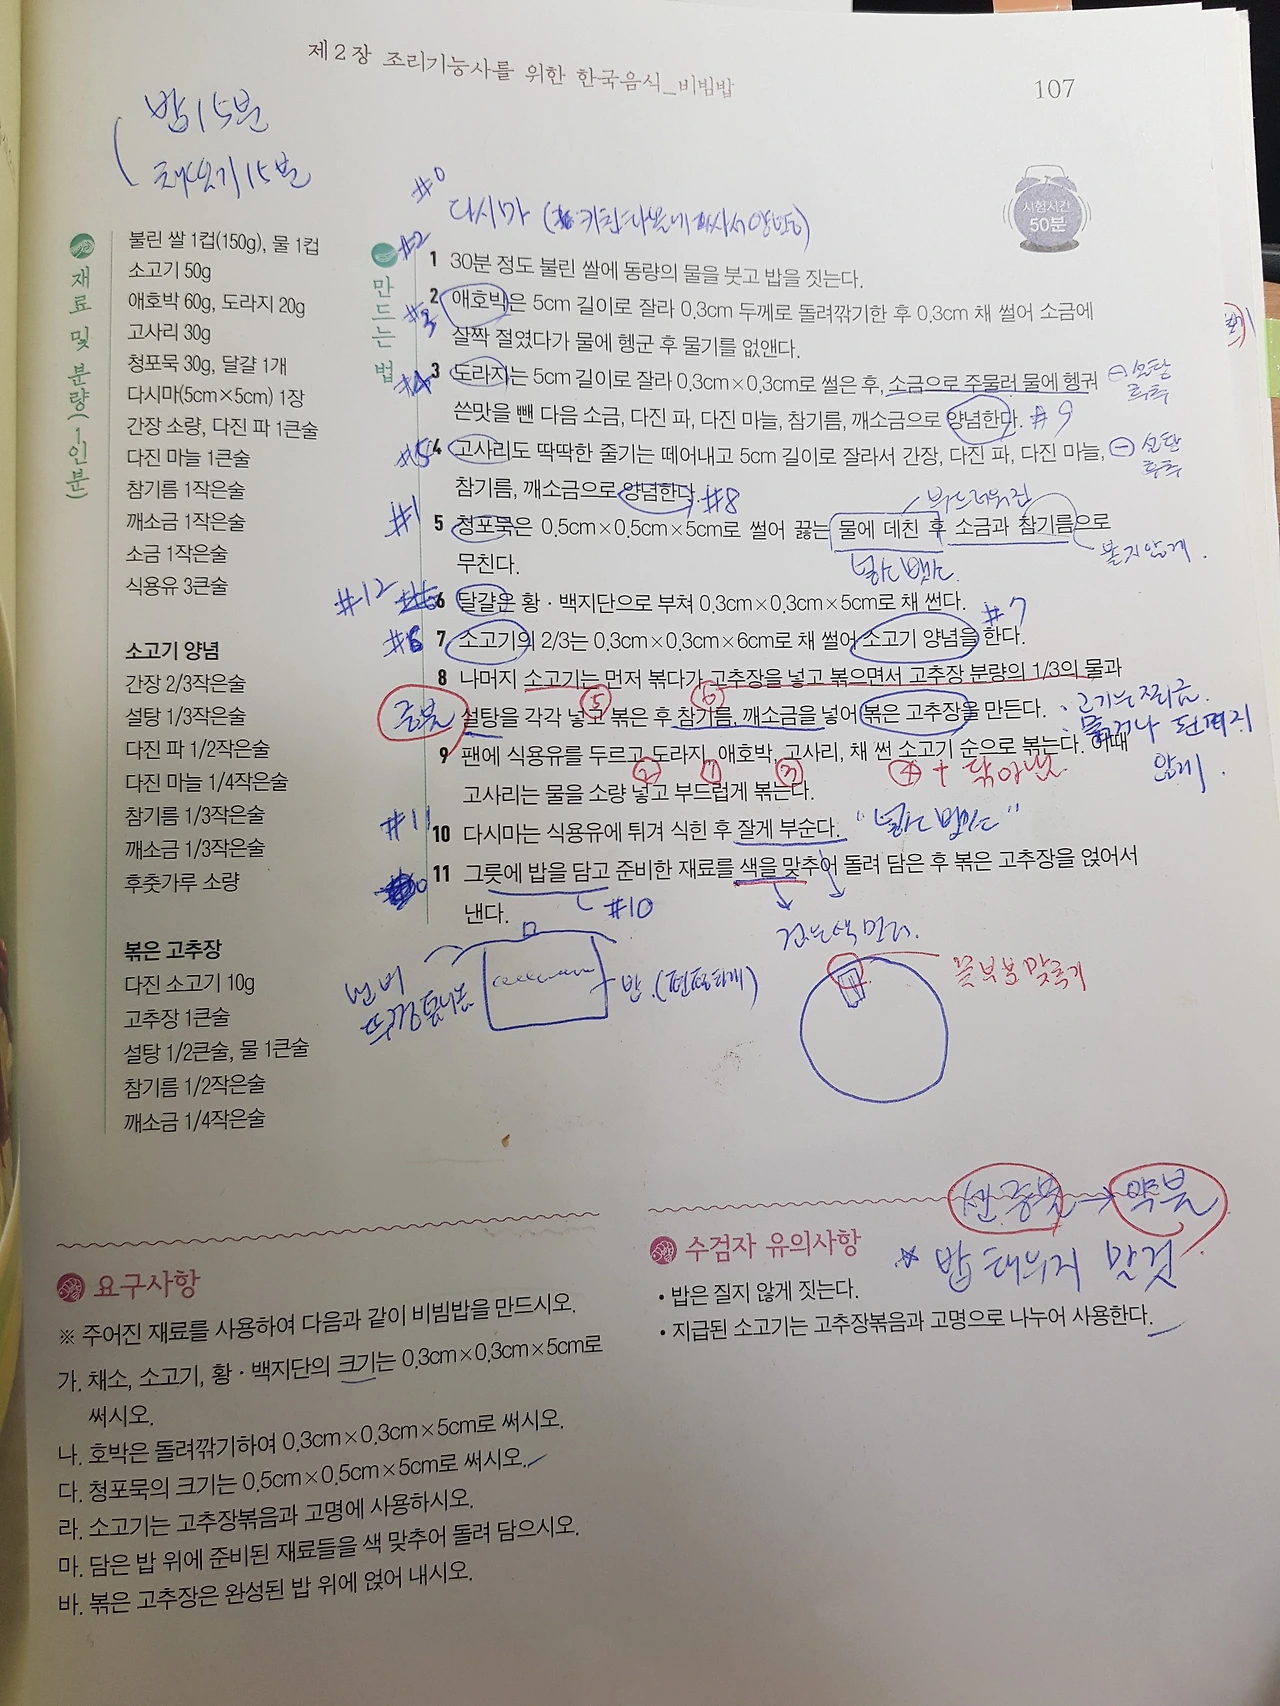 제2장 조리기능사를 위한 한국음식_비빔밥
107
밥 15분
#0
다시마
시험시간
50분
재료 및 분량(1인분)
불린 쌀 1컵(150g), 물 1컵
소고기 50g
애호박 60g, 도라지 20g
고사리 30g
청포묵 30g, 달걀 1개
다시마(5cm×5cm) 1장
간장 소량, 다진 파 1큰술
다진 마늘 1큰술
참기름 1작은술
깨소금 1작은술
소금 1작은술
식용유 3큰술
소고기 양념
간장 2/3작은술
설탕 1/3작은술
다진 파 1/2작은술
다진 마늘 1/4작은술
참기름 1/3작은술
깨소금 1/3작은술
후춧가루 소량
볶은 고추장
다진 소고기 10g
고추장 1큰술
설탕 1/2큰술, 물 1큰술
참기름 1/2작은술
깨소금 1/4작은술
만드는 법
#2
1 30분 정도 불린 쌀에 동량의 물을 붓고 밥을 짓는다.
#3
2 애호박은 5cm 길이로 잘라 0.3cm 두께로 돌려깎기한 후 0.3cm 채 썰어 소금에
살짝 절였다가 물에 헹군 후 물기를 없앤다.
#4
3 도라지는 5cm 길이로 잘라 0.3cm×0.3cm로 썰은 후, 소금으로 주물러 물에 헹궈
쓴맛을 뺀 다음 소금, 다진 파, 다진 마늘, 참기름, 깨소금으로 양념한다. #9
#5
4 고사리도 딱딱한 줄기는 떼어내고 5cm 길이로 잘라서 간장, 다진 파, 다진 마늘,
참기름, 깨소금으로 양념한다. #8
부드러워짐
#1
5 청포묵은 0.5cm×0.5cm×5cm로 썰어 끓는 물에 데친 후 소금과 참기름으로
무친다.
붙지않게.
#12
6 달걀은 황·백지단으로 부쳐 0.3cm×0.3cm×5cm로 채 썬다.
#7
#6
7 소고기의 2/3는 0.3cm×0.3cm×6cm로 채 썰어 소고기 양념을 한다.
8 나머지 소고기는 먼저 볶다가 고추장을 넣고 볶으면서 고추장 분량의 1/3의 물과
⑤ ⑥
중불
설탕을 각각 넣고 볶은 후 참기름, 깨소금을 넣어 볶은 고추장을 만든다.
9 팬에 식용유를 두르고 도라지, 애호박, 고사리, 채 썬 소고기 순으로 볶는다. 이때
② ① ③ ④ +
않게.
고사리는 물을 소량 넣고 부드럽게 볶는다.
#11
10 다시마는 식용유에 튀겨 식힌 후 잘게 부순다.
11 그릇에 밥을 담고 준비한 재료를 색을 맞추어 돌려 담은 후 볶은 고추장을 얹어서
낸다.
#10
냄비
밥.(편평하게)
끝부분 맞추기
센 중불 → 약불
* 밥 태우지 말것
요구사항
※ 주어진 재료를 사용하여 다음과 같이 비빔밥을 만드시오.
가. 채소, 소고기, 황·백지단의 크기는 0.3cm×0.3cm×5cm로
써시오.
나. 호박은 돌려깎기하여 0.3cm×0.3cm×5cm로 써시오.
다. 청포묵의 크기는 0.5cm×0.5cm×5cm로 써시오.
라. 소고기는 고추장볶음과 고명에 사용하시오.
마. 담은 밥 위에 준비된 재료들을 색 맞추어 돌려 담으시오.
바. 볶은 고추장은 완성된 밥 위에 얹어 내시오.
수검자 유의사항
• 밥은 질지 않게 짓는다.
• 지급된 소고기는 고추장볶음과 고명으로 나누어 사용한다.